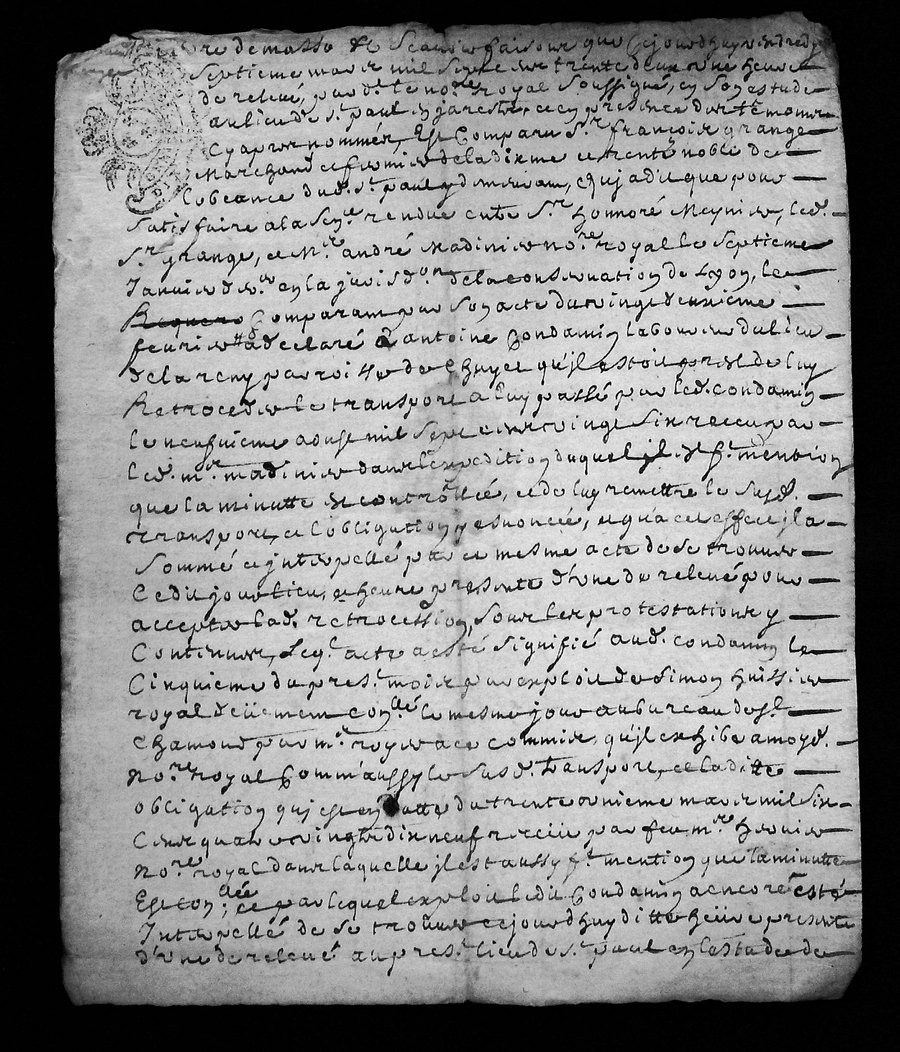 re de masso et Scavoir faisons que Cejourdhuy vendredy
Septieme mars mil Sept cent trente deux une heure
de relevé, par dt. le nore. royal Soussigné, en Son estude
au lieu de St. paul en jarests, et en presence des temoins
Cy apres nommés, Est Comparu Sr. françois grange
Marchand et fermier de la dixme et rente noble de
lobeance dud. St. paul y demeurant, Qui a dit que pour
Satisfaire a la Senee. rendue entre Sr. honnoré Meynier, led.
Sr. grange, et Me. andré Madinier nore. royal le Septieme
Janvier der. en la jurisdon. de la conservation de Lyon, le
Requero Comparant par Son acte du vingt deuxieme
feuvrier a declaré a antoine Condamin laboureur du lieu
de la reny parroisse de Chuyes qu'jl estoit prest de luy
Retroceder le transport a luy passé par led. condamin
le neufvieme aoust mil Sept cent vingt Six receu par
led. me. madinier dans l'expedition duquel jl est ft. mention
que la minutte est controllée, et de luy remettre le Susd.
transport, et l'obligation y enoncée, et qu'a cet effect jl a
Sommé et jnterpellé par ce mesme acte de Se trouver
Cedit jour lieu, et heure presente d'une de relevé pour
accepter lad. retrocession, Sous les protestations y
Contenues, Leql. acte a esté Signifié aud. condamin le
Cinquieme du prest. mois par exploit de Simon huissier
royal deüement conllé. le mesme jour au bureau de St.
Chamond par me. royer a ce commis, qu'jl exhibe a moyd.
Nore. royal Comm'aussy le Susd. transport, et laditte
obligation qui est en datte du trente unieme mars mil Six
Cens quatre vingts dix neuf receüe par feu me. hervier
Nore. royal dans laquelle jl est aussy ft. mention que la minutte
Est conllée, et par lequel exploit ledit Condamin a encore esté
Jnterpellé de Se trouver cejourdhuy ditte heüre presente
d'une de relevé au prest. lieu de St. paul en lestude de